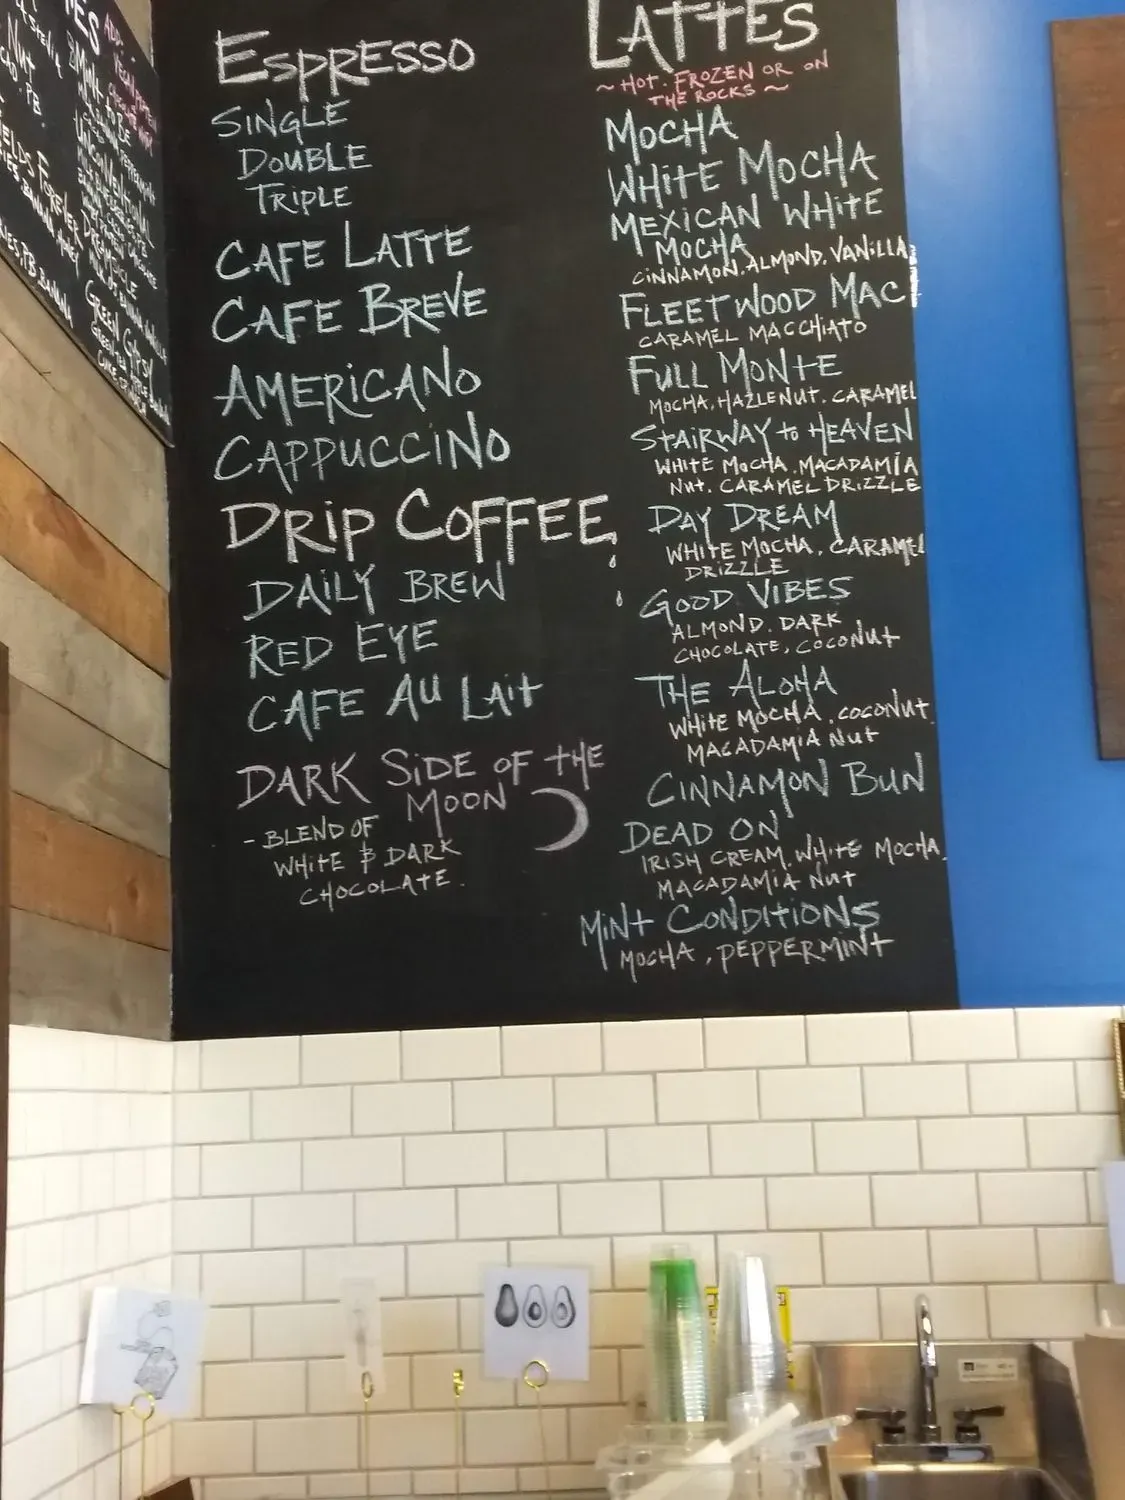 ADD:
VEGAN PROTEIN
NUT
PB
MINT TO BE
UNCONVENTIONAL
FIELDS FOREVER
DREAMSICLE
GREEN GYPSY
ESPRESSO
SINGLE
DOUBLE
TRIPLE
CAFE LATTE
CAFE BREVE
AMERICANO
CAPPUCCINO
DRIP COFFEE
DAILY BREW
RED EYE
CAFE AU LAIT
DARK SIDE OF THE
MOON
- BLEND OF
WHITE & DARK
CHOCOLATE.
LATTES
~ HOT. FROZEN OR ON
THE ROCKS ~
MOCHA
WHITE MOCHA
MEXICAN WHITE
MOCHA
CINNAMON, ALMOND, VANILLA
FLEETWOOD MAC
CARAMEL MACCHIATO
FULL MONTE
MOCHA, HAZLENUT, CARAMEL
STAIRWAY to HEAVEN
WHITE MOCHA, MACADAMIA
NUT, CARAMEL DRIZZLE
DAY DREAM
WHITE MOCHA, CARAMEL
DRIZZLE
GOOD VIBES
ALMOND, DARK
CHOCOLATE, COCONUT
THE ALOHA
WHITE MOCHA, COCONUT,
MACADAMIA NUT
CINNAMON BUN
DEAD ON
IRISH CREAM, WHITE MOCHA,
MACADAMIA NUT
MINT CONDITIONS
MOCHA, PEPPERMINT